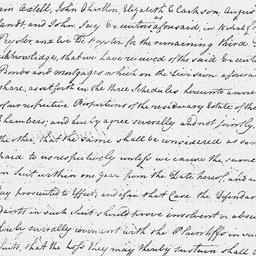 am Astell, John Charlton, Elizabeth C Clarkson, August
landt, and John Jay Executors aforesaid, in behalf
Rector, and we the Register for the remaining third
acknowledge, that we have received of the said Ex
Bonds and mortgages which on the Division aforesai
share, as set forth in the three Schedules hereunto annex
of our respective Proportions of the residuary Estate of the
Chambers; and hereby agree severally and not jointly
the other, that the same shall be considered as so
paid to us respectively unless we cause the same
in Suit within one year from the Date hereof, and
ly prosecuted to Effect, and if in that Case the Defendan
dants in such Suit should prove insolvent or
hereby severally covenant with the Plaintiffs in
Suits, that the loss they may thereby sustain shall